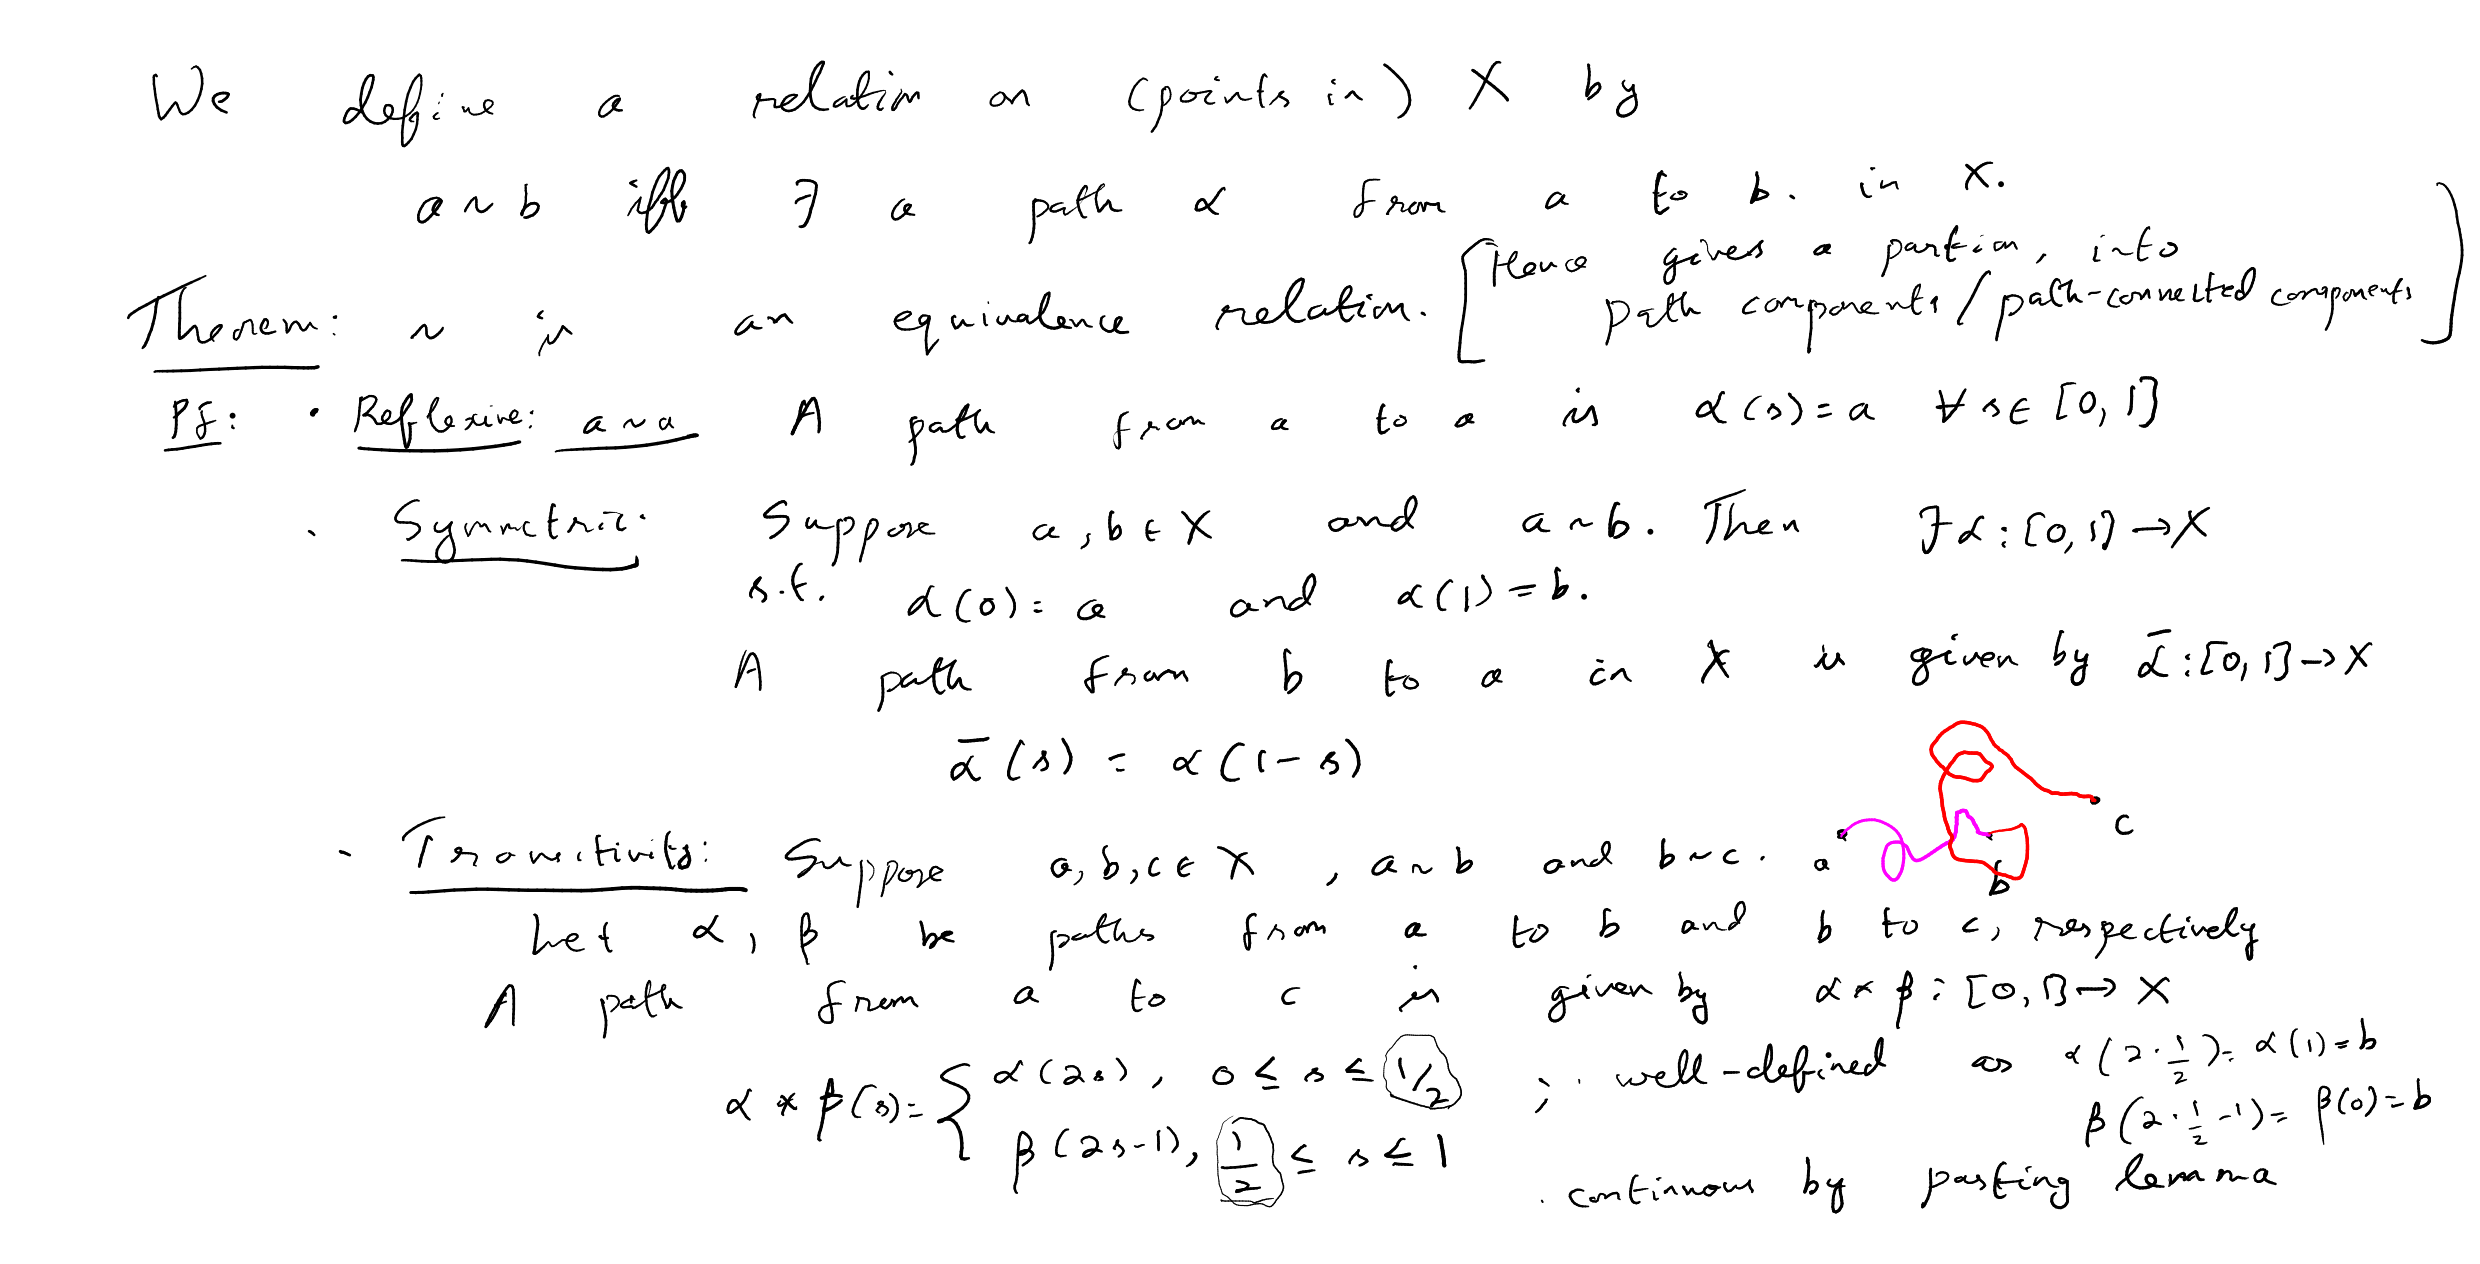 We define a relation on (points in) X by
a ~ b iff ∃ a path α from a to b. in X.
Theorem: ~ is an equivalence relation. [Hence gives a partion, into
path components / path-connected components]
Pf: • Reflexive: a ~ a A path from a to a is α(s) = a ∀ s ∈ [0, 1]
· Symmetric: Suppose a, b ∈ X and a ~ b. Then ∃ α : [0, 1] → X
s.t. α(0) = a and α(1) = b.
A path from b to a in X is given by ᾱ : [0, 1] → X
ᾱ(s) = α(1 - s)
· Transitivity: Suppose a, b, c ∈ X, a ~ b and b ~ c. a b c
Let α, β be paths from a to b and b to c, respectively
A path from a to c is given by α * β : [0, 1] → X
α * β(s) = { α(2s), 0 ≤ s ≤ 1/2 ; · well-defined as α(2·1/2) = α(1) = b
β(2·1/2 - 1) = β(0) = b
β(2s-1), 1/2 ≤ s ≤ 1
· continuous by pasting lemma